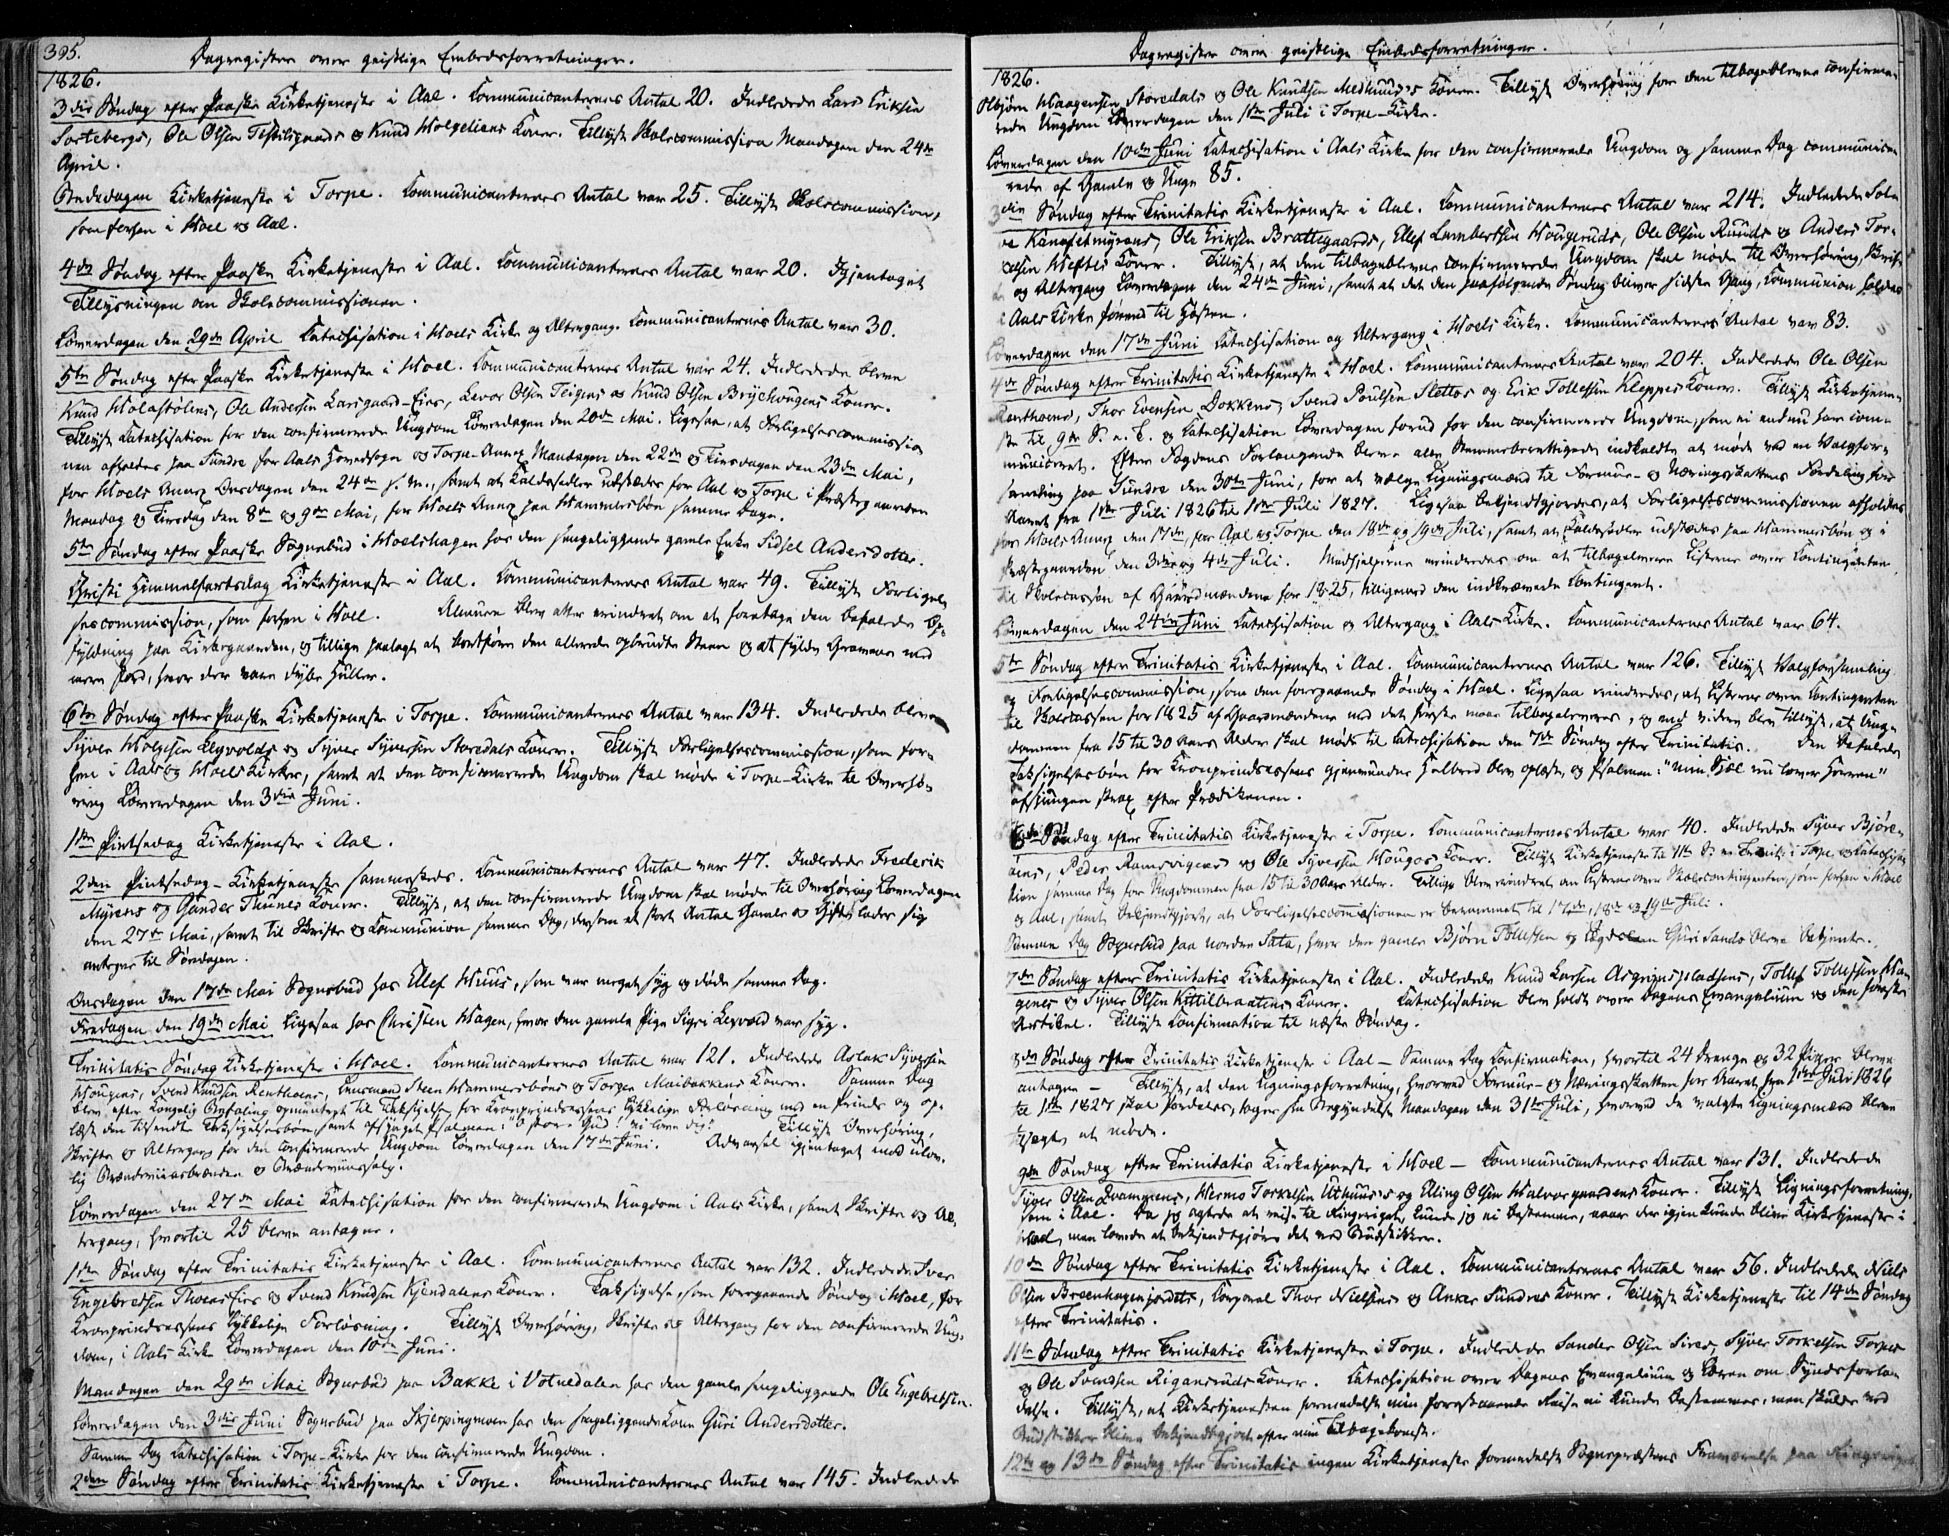 395.
Dagregister over geistlige Embedsforretninger.
1826.
3die Søndag efter Paaske Kirketjeneste i Aal. Communicanternes Antal 20. Indledede Lars Eriksen
Sortebergs, Ole Olsen og Knud Koner. Tillyst Skolecommission Mandagen den 24de
April.
Onsdagen Kirketjeneste i Torpe. Communicanternes Antal var 25. Tillyst Skolecommission,
som forhen i Hoel og Aal.
4de Søndag efter Paaske Kirketjeneste i Aal. Communicanternes Antal var 20. Igjentaget
Tillysningen om Skolecommissionen.
Løverdagen den 29de April Catechisation i Hoels Kirke og Altergang. Communicanternes Antal var 30.
5te Søndag efter Paaske Kirketjeneste i Hoel. Communicanternes Antal var 24. Indledede bleve
Knud Holastølens, Ole Andersen Larsgaard-Eies, Levor Olsen Teigens og Knud Olsen Koner.
Tillyst Catechisation for den confirmerede Ungdom Løverdagen den 20de Mai. Ligesaa, at Forligelsescommissio
nen afholdes paa Sundre for Aals Hovedsogn og Torpe-Annex Mandagen den 22de og Tirsdagen den 23de Mai,
for Hoels Annex Onsdagen den 24de s. M., samt at Kaldssedler udstædes for Aal og Torpe i Præstegaarden
Mandag og Tirsdag den 8de og 9de Mai, for Hoels Annex paa Hammersbøn samme Dage.
5te Søndag efter Paaske Sognebud i Hoelshagen hos den sengeliggende gamle Enke Sidsel Andersdotter.
Christi Himmelfartsdag Kirketjeneste i Aal. Communicanternes Antal var 49. Tillyst Forligel-
sescommission, som forhen i Hoel. Almuen blev atter erindret om at foretage den befalede Op-
fyldning paa Kirkegaarden, og tillige paalagt at bortføre den allerede opbrudte Steen og at fylde Gravene med
mere Jord, hvor der vare dybe Huller.
6te Søndag efter Paaske Kirketjeneste i Torpe. Communicanternes Antal var 134. Indledede bleve
Syver Holgesen og Syver Syversen Storedals Koner. Tillyst Forligelsescommission, som for-
hen i Aals og Hoels Kirker, samt at den confirmerede Ungdom skal møde i Torpe-Kirke til Overhø-
ring Løverdagen den 3die Juni.
1ste Pintsedag Kirketjeneste i Aal.
2den Pintsedag Kirketjeneste sammesteds. Communicanternes Antal var 47. Indledede Frederik
Myrens og Gunder Thunes Koner. Tillyst, at den confirmerede Ungdom skal møde til Overhøring Løverdagen
den 27de Mai, samt til Skrifte og Communion samme Dag, dersom et stort Antal Gamle og Gifte lader sig
antegne til Søndagen.
Onsdagen den 17de Mai Sognebud hos Ellef Huus, som var meget syg og døde samme Dag.
Fredagen den 19de Mai Ligesaa hos Christen Hagen, hvor den gamle Pige Sigri var syg.
Trinitatis Søndag Kirketjeneste i Hoel. Communicanternes Antal var 121. Indledede Aslak Syversen
Hougens, Svend Knudsen Renthoens, Lensmand Steen Hammersbøns og Torger Maibakkens Koner. Samme Dag
blev efter Kongelig Befaling opmuntret til Taksigelse for Kronprindsessens lykkelige Forløsning med en Prinds og op-
læst den tilsendte Taksigelsesbøn, samt afsjunget Psalmen: "O store Gud! vi love dig". Tillyst Overhøring,
Skrifte og Altergang for den confirmerede Ungdom Løverdagen den 17de Juni. Advarsel igjentaget mod ulov-
lig Brændeviinsbrænden og Brændeviinssalg.
Løverdagen den 27de Mai Catechisation for den confirmerede Ungdom i Aals Kirke, samt Skrifte og Al-
tergang, hvortil 25 bleve antagne.
1ste Søndag efter Trinitatis Kirketjeneste i Aal. Communicanternes Antal var 132. Indledede Iver
Engebretsen Thoens Eies og Svend Knudsen Kjendalens Koner. Taksigelse, som foregaaende Søndag i Hoel, for
Kronprindsessens lykkelige Forløsning. Tillyst Overhøring, Skrifte og Altergang for den confirmerede Ung-
dom, i Aals Kirke Løverdagen den 10de Juni.
Mandagen den 29de Mai Sognebud paa Bakke i Votnedalen hos den gamle sengeliggende Ole Engebretsen.
Løverdagen den 3die Juni Sognebud paa Skjerpingmoen hos den sengeliggende Kone Guri Andersdotter.
Samme Dag Catechisation i Torpe-Kirke for den confirmerede Ungdom.
2den Søndag efter Trinitatis Kirketjeneste i Torpe. Communicanternes Antal var 145. Indledede
Dagregister over geistlige Embedsforretninger.
1826.
Asbjørn Haagensen Storedals og Ole Knudsen Medhuus's Koner. Tillyst Overhøring for den tilbageblevne confirme-
rede Ungdom Løverdagen den 1ste Juli i Torpe-Kirke.
Løverdagen den 10de Juni Catechisation i Aals Kirke for den confirmerede Ungdom og samme Dag communice-
rede af Gamle og Unge 85.
3die Søndag efter Trinitatis Kirketjeneste i Aal. Communicanternes Antal var 214. Indledede
Ole Eriksen Brattegaards, Ellef Lambertsen Hougeruds, Ole Olsen Ruuds og Anders Tor-
Koner. Tillyst, at den tilbageblevne confirmerede Ungdom skal møde til Overhøring, Skrif-
te og Altergang Løverdagen den 24de Juni, samt at det den paafølgende Søndag bliver sidste Gang, Communion holdes
i Aals Kirke førend til Høsten.
Løverdagen den 17de Juni Catechisation og Altergang i Hoels Kirke. Communicanternes Antal var 83.
4de Søndag efter Trinitatis Kirketjeneste i Hoel. Communicanternes Antal var 204. Indledede Ole Olsen
Renthoens, Thor Evensen Dokkens, Svend Poulsen Slettes og Erik Tollefsen Kleppes Koner. Tillyst Kirketjene-
ste til 9de S. e. T. og Catechisation Løverdagen forud for den confirmerede Ungdom, som ei endnu har com-
municeret. Efter Fogdens Forlangende bleve alle Stemmeberettigede indkaldte at møde ved en Valgfor-
samling paa Sundre den 30te Juni, for at vælge Ligningsmænd til Formue- og Næringsskattens Fordeling for
Aaret fra 1ste Juli 1826 til 1ste Juli 1827. Ligesaa bekjendtgjordes, at Forligelsescommissionen afholdes
for Hoels Annex den 17de, for Aal og Torpe den 18de og 19de Juli, samt at Kaldssedler udstædes paa Hammersbøn og i
Præstegaarden den 3die og 4de Juli. Medhjelperne erindredes om at tilbagelevere Listerne over Contingenten
til Skolecassen af Gaardmændene for 1825, tilligemed den indkrævede Contingent.
Løverdagen den 24de Juni Catechisation og Altergang i Aals-Kirke. Communicanternes Antal var 64.
5te Søndag efter Trinitatis Kirketjeneste i Aal. Communicanternes Antal var 126. Tillyst Valgforsamling
og Forligelsescommission, som den foregaaende Søndag i Hoel. Ligesaa erindredes, at Listerne over Contingenten
til Skolecassen for 1825 af Gaardmændene med det første maae tilbageleveres, og med videre blev tillyst, at Ung-
dommen fra 15 til 30 Aars Alder skal møde til Catechisation den 7de Søndag efter Trinitatis. Den befalede
Taksigelsesbøn for Kronprindsessens gjenvundne Helbred blev oplæst, og Psalmen: "Min Sjæl nu lover Herren"
afsjungen strax efter Prædikenen.
6te Søndag efter Trinitatis Kirketjeneste i Torpe. Communicanternes Antal var 40. Indledede Syver Bjøre-
øens, Peder Ramsvigens og Ole Syversen Hougos Koner. Tillyst Kirketjeneste til 11te S. e. Trinit. i Torpe og Catechisa-
tion samme Dag for Ungdommen fra 15 til 30 Aars Alder. Tillige blev erindret om Listerne over Skolecontingenten, som forhen i Hoel
og Aal, samt bekjendtgjort, at Forligelsescommissionen er berammet til 17de, 18de og 19de Juli.
Samme Dag Sognebud paa nordre Sata, hvor den gamle Bjørn Tollefsen og Guri Sando bleve betjente.
7de Søndag efter Trinitatis Kirketjeneste i Aal. Indledede Knud Larsen Asgrimspladsens, Tollef Tollefsen Ha-
genes og Syver Olsen Kittilbraatens Koner. Catechisation blev holdt over Dagens Evangelium og den første
Artikel. Tillyst Confirmation til næste Søndag.
8de Søndag efter Trinitatis Kirketjeneste i Aal - Samme Dag Confirmation, hvortil 24 Drenge og 32 Piger bleve
antagne - Tillyst, at den Ligningsforretning, hvorved Formue- og Næringsskatten for Aaret fra 1ste Juli 1826
til 1ste 1827 skal fordeles, tager sin Begyndelse Mandagen den 31te Juli, hvorved de valgte Ligningsmænd bleve
at møde.
9de Søndag efter Trinitatis Kirketjeneste i Hoel - Communicanternes Antal var 131. Indledede
Syver Olsen Kvammens, Hermo Torkelsen Uthuus's og Elling Olsen Halvorsgaardens Koner. Tillyst Ligningsforretning,
som i Aal. Da jeg agtede at reise til Ringeriget, kunde jeg ei bestemme, naar der igjen kunde blive Kirketjeneste i
Hoel, men lovede at bekjendtgjøre det ved Budstikker.
10de Søndag efter Trinitatis Kirketjeneste i Aal. Communicanternes Antal var 56. Indledede Niels
Olsen Breenhagenjordets, Corporal Thor Nielsens og Anker Sundres Koner. Tillyst Kirketjeneste til 14de Søndag
efter Trinitatis.
11te Søndag efter Trinitatis Kirketjeneste i Torpe. Indledede Sander Olsen Sires, Syver Torkelsen Torpes
og Ole Svendsen Rigansruds Koner. Catechisation over Dagens Evangelium og Læren om Syndsforla-
delse. Tillyst, at Kirketjenesten formedelst min forestaaende Reise ei kunde bestemmes, men skulde ved
Budstikker blive bekjendtgjort efter min Tilbagekomst.
12te og 13de Søndag efter Trinitatis ingen Kirketjeneste formedelst Sognepræstens Fraværelse paa Ringeriget.